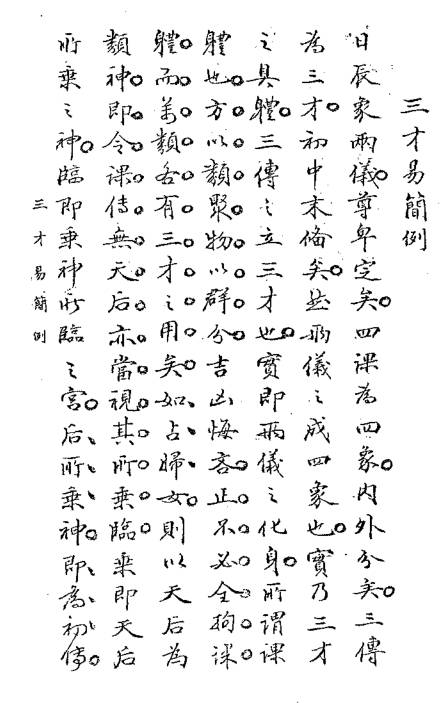 三才易簡例
日辰象兩儀尊卑定矣四課為四象內外分矣三傳
為三才初中末備矣然兩儀之成四象也實乃三才
之具體三傳之立三才也實即兩儀之化身所謂課
體也方以類聚物以群分吉凶悔吝正不必全拘課
體而萬類各有三才之用矣如占婦女則以天后為
類神即令課傳無天后亦當視其所乘臨乘即天后
所乘之神臨即乘神所臨之宮后所乘神即為初傳
三才易簡例